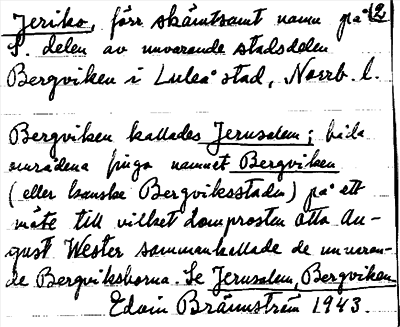 Jeriko, förr skämtsamt namn på 12
S. delen av nuvarande stadsdelen
Bergviken i Luleå stad, Norrb. l.
Bergviken kallades Jerusalem; båda
områdena fingo namnet Bergviken
(eller kanske Bergviksstaden) på ett
möte till vilket domprosten Otto Au-
gust Wester sammankallade de nuvaran-
de Bergviksborna. Se Jerusalem, Bergviken
Edvin Brännström 1943.